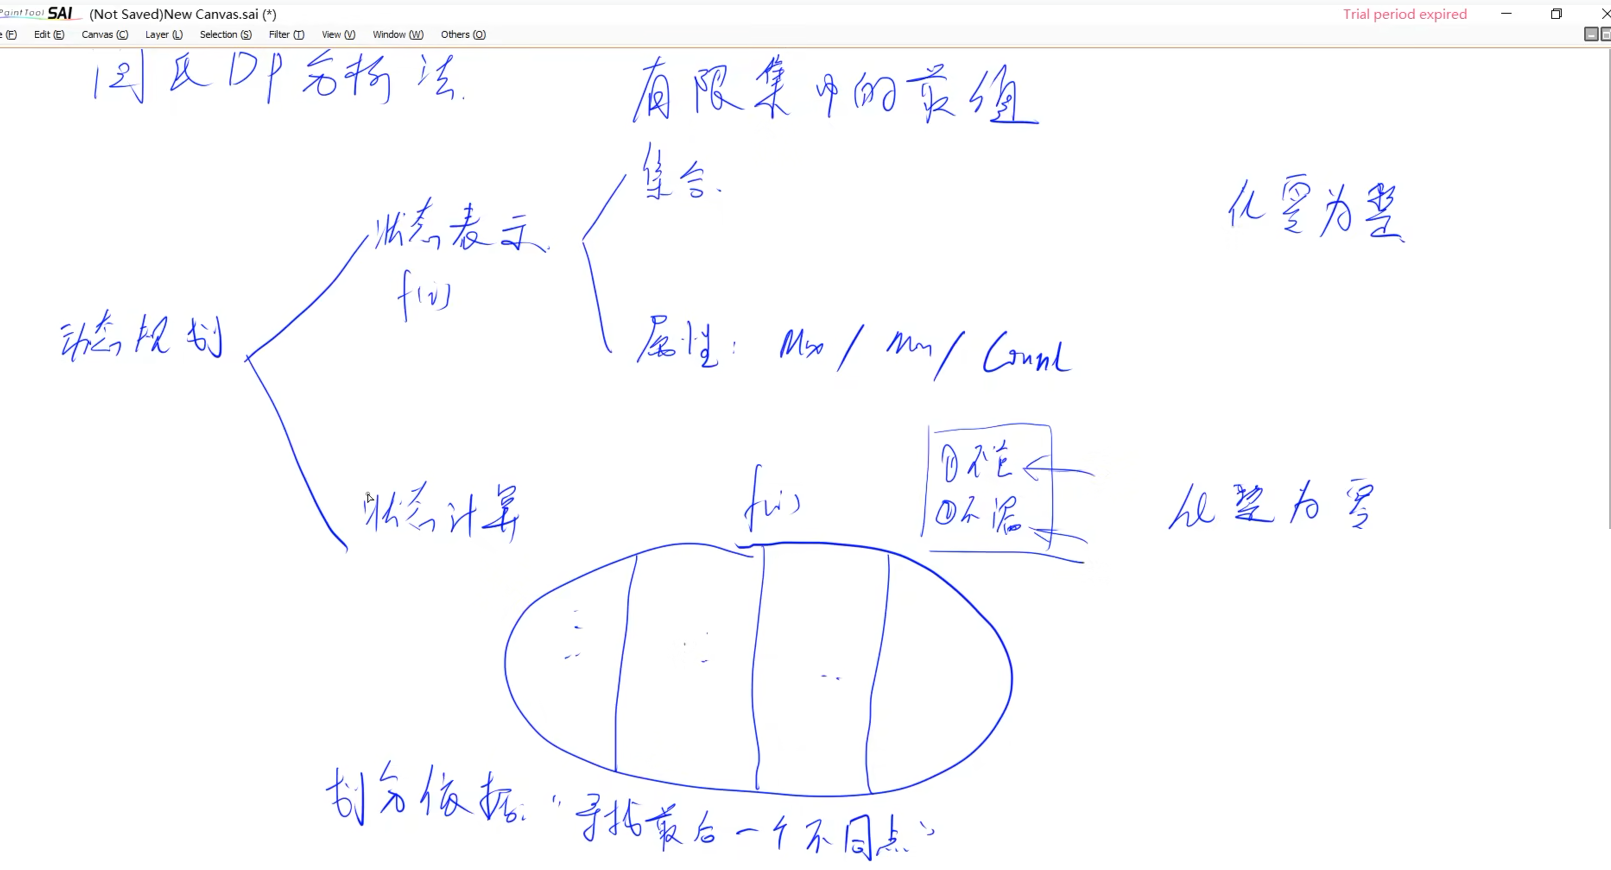 PaintTool SAI (Not Saved)New Canvas.sai (*) Trial period expired
(F) Edit (E) Canvas (C) Layer (L) Selection (S) Filter (T) View (V) Window (W) Others (O)
闫氏DP分析法.
有限集中的最值
集合.
化零为整
状态表示.
f(i)
动态规划
属性: Max / Min / Count
①不重
②不漏
f(i)
状态计算
化整为零
划分依据: “寻找最后一个不同点”